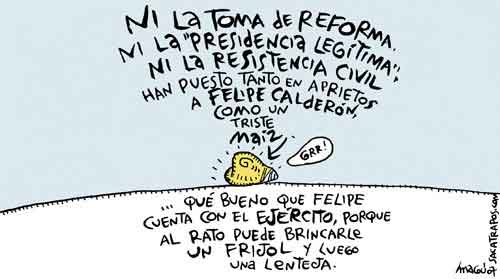 NI LA TOMA DE REFORMA.
NI LA "PRESIDENCIA LEGÍTIMA",
NI LA RESISTENCIA CIVIL
HAN PUESTO TANTO EN APRIETOS
A FELIPE CALDERÓN,
COMO UN
TRISTE
MAIZ
GRR!
... QUÉ BUENO QUE FELIPE
CUENTA CON EL EJÉRCITO, PORQUE
AL RATO PUEDE BRINCARLE
UN FRIJOL Y LUEGO
UNA LENTEJA.
MAGÚ
SACATRAPOS.COM